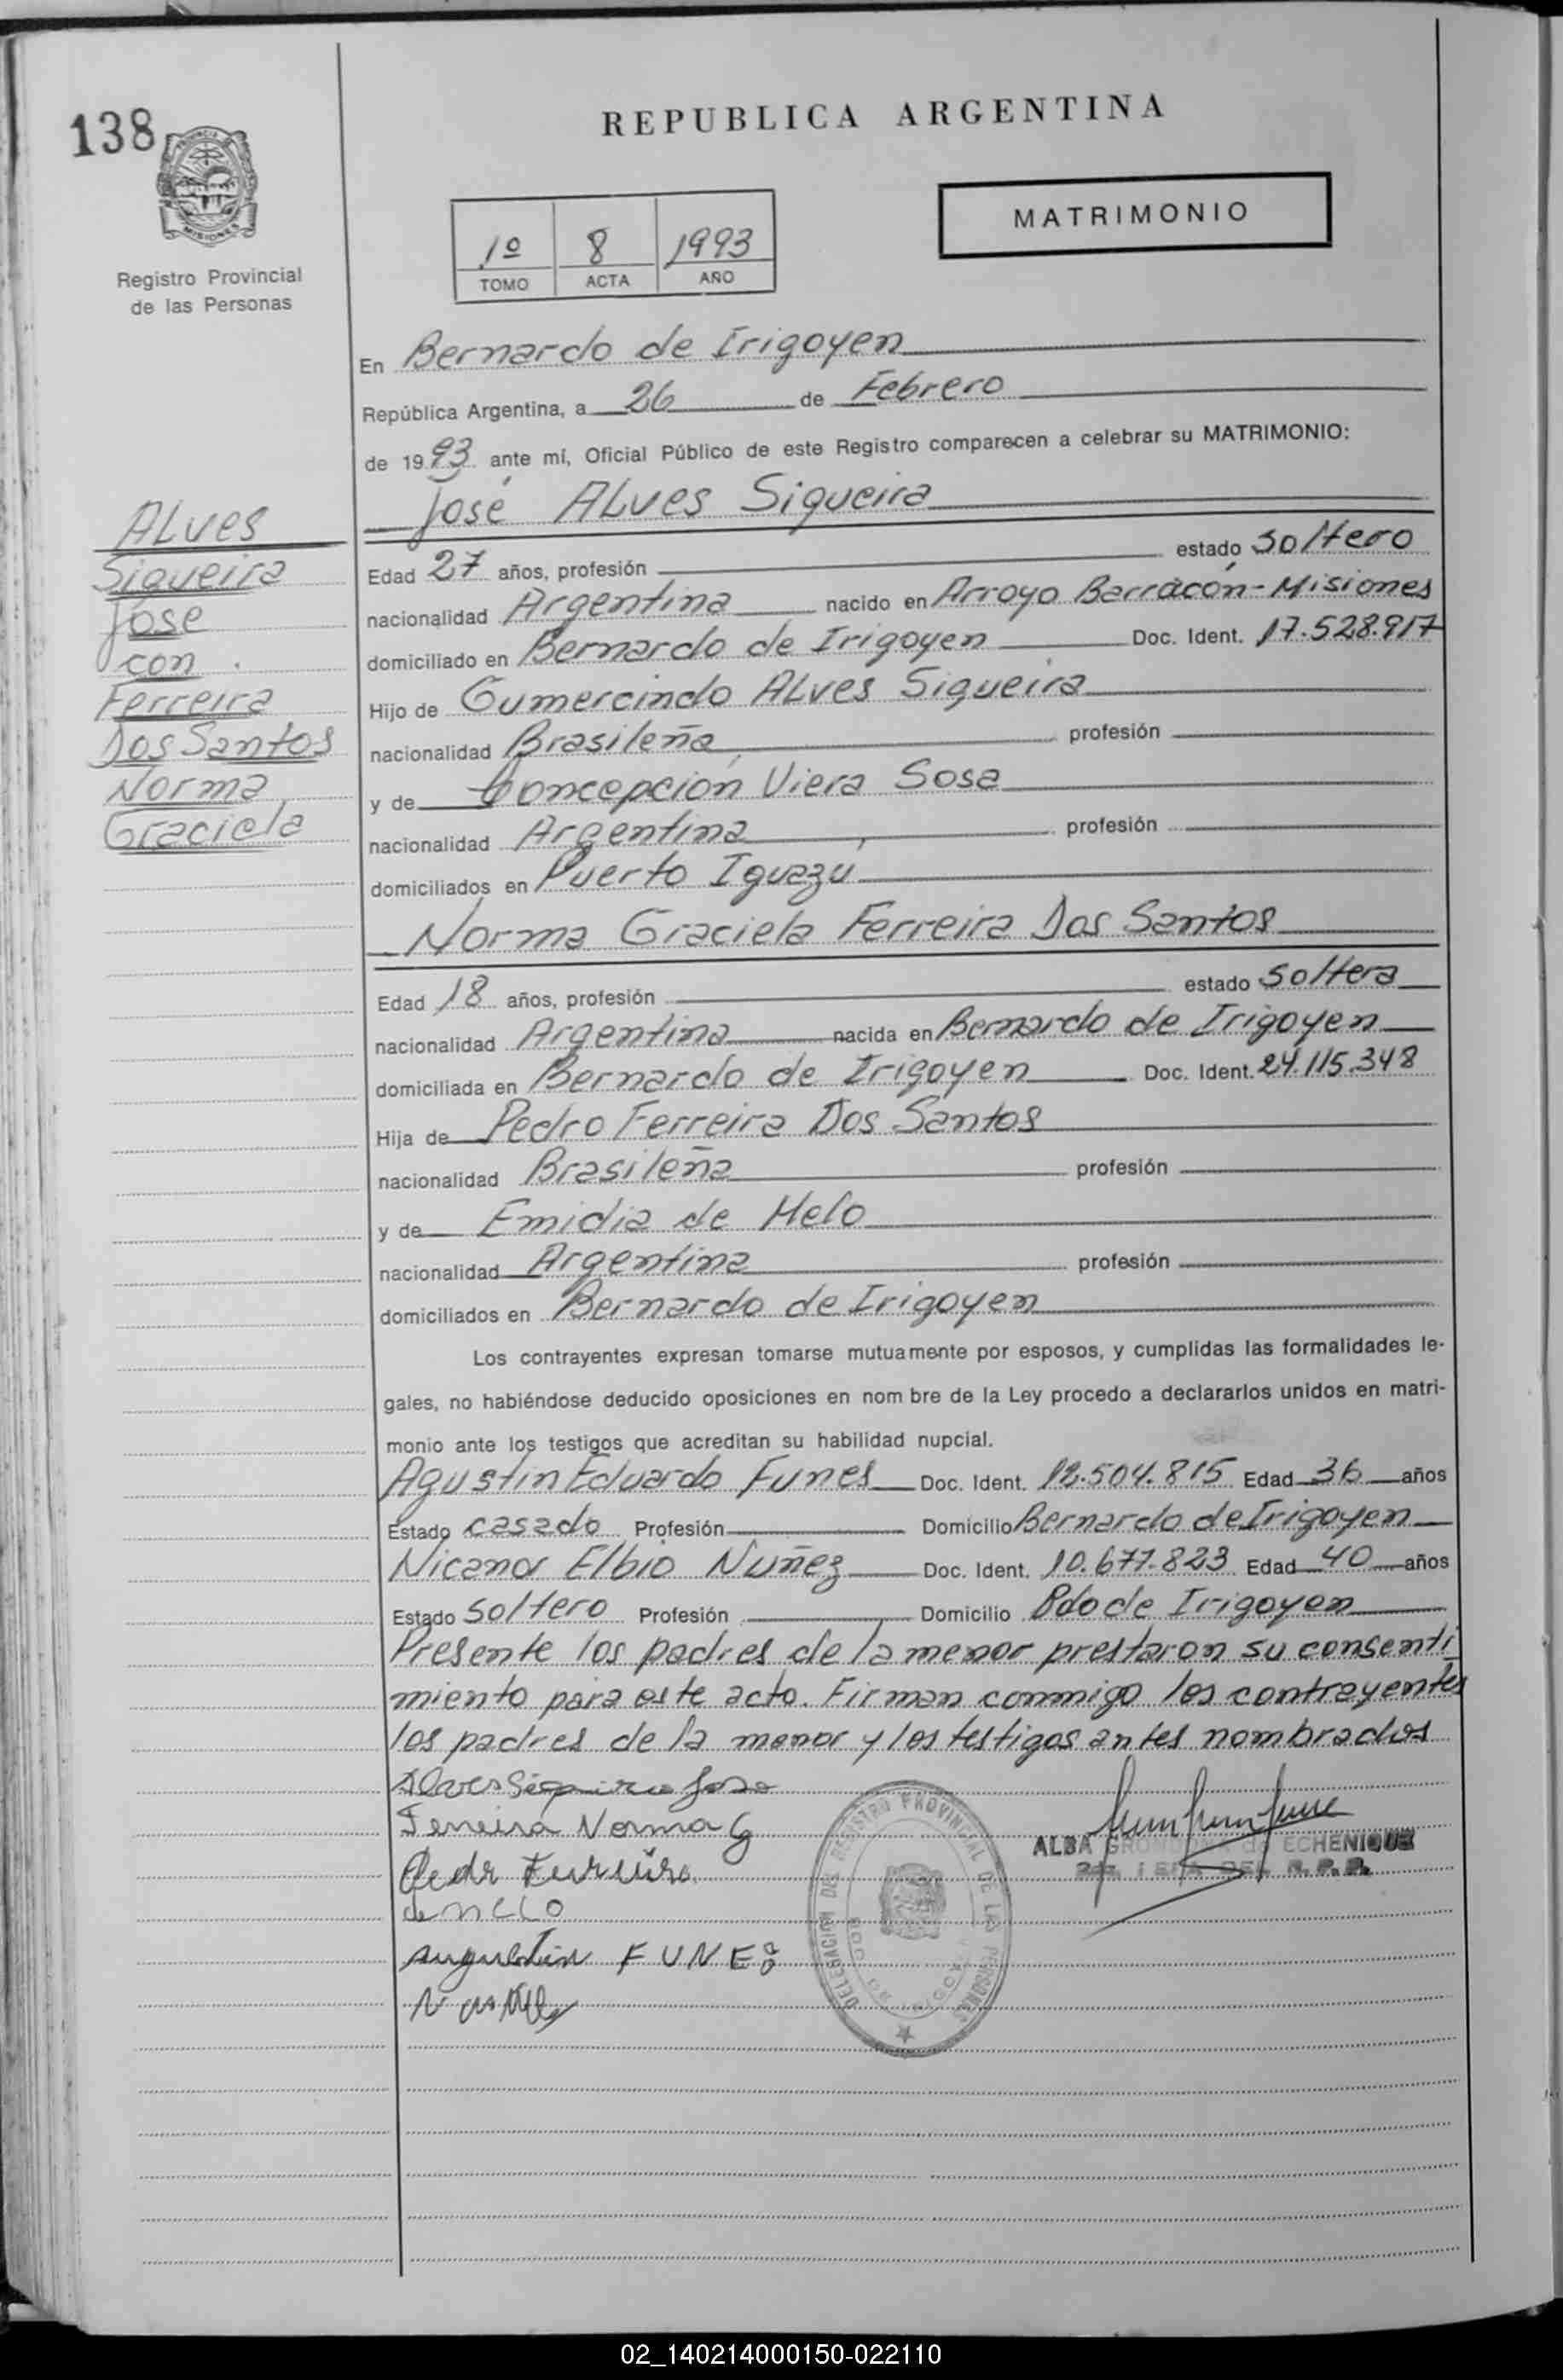 138
PROVINCIA
MISIONES
Registro Provincial
de las Personas
REPUBLICA ARGENTINA
MATRIMONIO
1º 8 1993
TOMO ACTA AÑO
En Bernardo de Irigoyen
República Argentina, a 26 de Febrero
de 1993 ante mí, Oficial Público de este Registro comparecen a celebrar su MATRIMONIO:
José ALves Siqueira
ALves
Siqueira
José
con
Ferreira
Dos Santos
Norma
Graciela
Edad 27 años, profesión estado Soltero
nacionalidad Argentina nacido en Arroyo Barracón-Misiones
domiciliado en Bernardo de Irigoyen Doc. Ident. 17.528.917
Hijo de Gumercindo ALves Siqueira
nacionalidad Brasileña profesión
y de Concepción Viera Sosa
nacionalidad Argentina profesión
domiciliados en Puerto Iguazú
Norma Graciela Ferreira Dos Santos
Edad 18 años, profesión estado Soltera
nacionalidad Argentina nacida en Bernardo de Irigoyen
domiciliada en Bernardo de Irigoyen Doc. Ident. 24.115.348
Hija de Pedro Ferreira Dos Santos
nacionalidad Brasileña profesión
y de Emidia de Melo
nacionalidad Argentina profesión
domiciliados en Bernardo de Irigoyen
Los contrayentes expresan tomarse mutuamente por esposos, y cumplidas las formalidades le-
gales, no habiéndose deducido oposiciones en nom bre de la Ley procedo a declararlos unidos en matri-
monio ante los testigos que acreditan su habilidad nupcial.
Agustin Eduardo Funes Doc. Ident. 12.504.815 Edad 36 años
Estado casado Profesión Domicilio Bernardo de Irigoyen
Nicanor Elbio Nuñez Doc. Ident. 10.677.823 Edad 40 años
Estado Soltero Profesión Domicilio Bdo de Irigoyen
Presente los padres de la menor prestaron su consenti
miento para este acto. Firman conmigo los contrayentes
los padres de la menor y los testigos antes nombrados
Alves Siqueira Jose
Ferreira Norma G
Pedr Ferreira
de MELO
Augustin FUNES
DELEGACION DEL REGISTRO PROVINCIAL DE LAS PERSONAS
ALBA ECHENIQUE
DEL R. P. P.
02_140214000150-022110